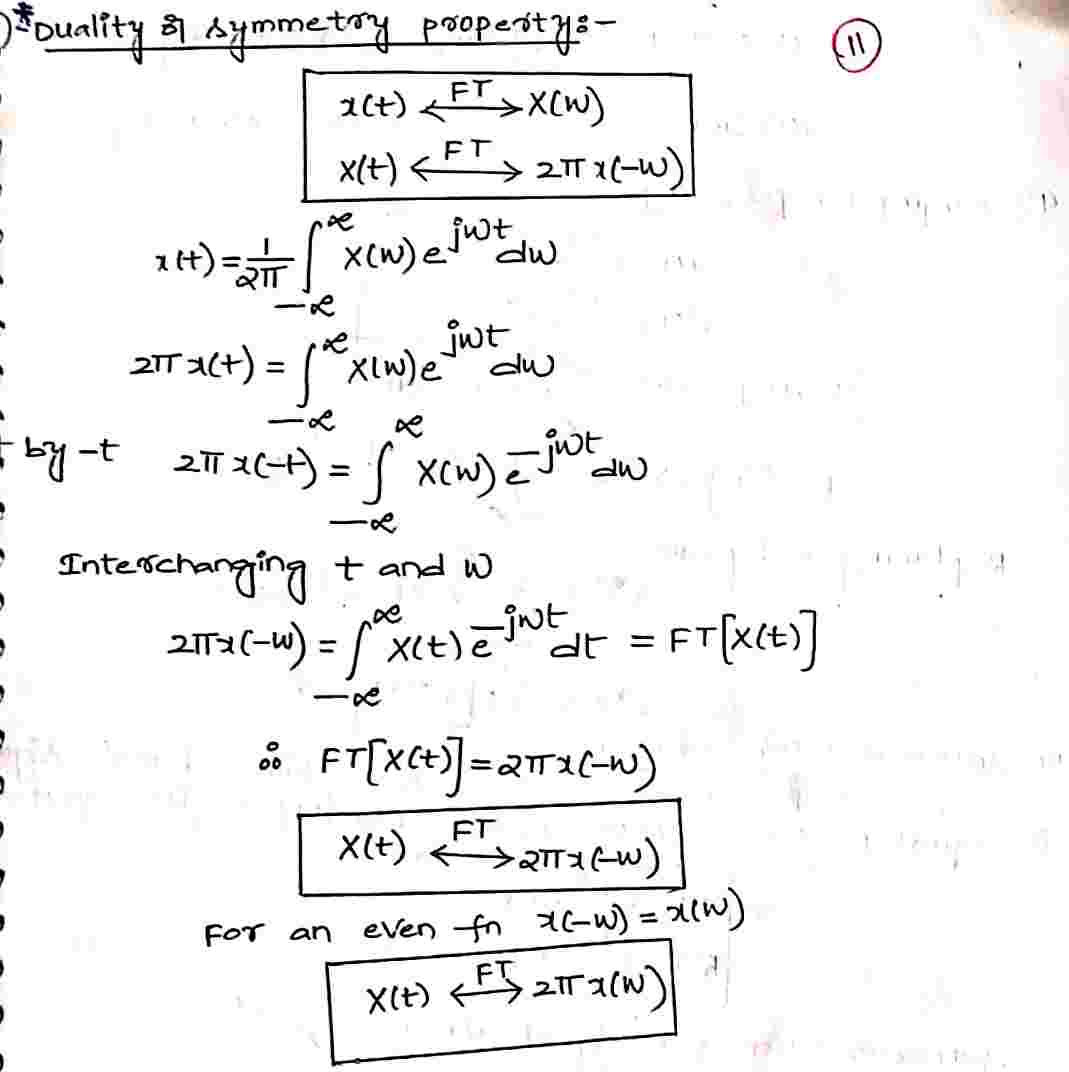 *Duality or symmetry property:-
11
x(t) ←FT→ X(w)
X(t) ←FT→ 2π x(-w)
x(t) = 1/2π ∫_{-∞}^{∞} X(w) e^{jwt} dw
2π x(t) = ∫_{-∞}^{∞} X(w) e^{jwt} dw
by -t 2π x(-t) = ∫_{-∞}^{∞} X(w) e^{-jwt} dw
Interchanging t and w
2πx(-w) = ∫_{-∞}^{∞} X(t) e^{-jwt} dt = FT[X(t)]
∴ FT[X(t)] = 2π x(-w)
X(t) ←FT→ 2π x(-w)
For an even fn x(-w) = x(w)
X(t) ←FT→ 2π x(w)